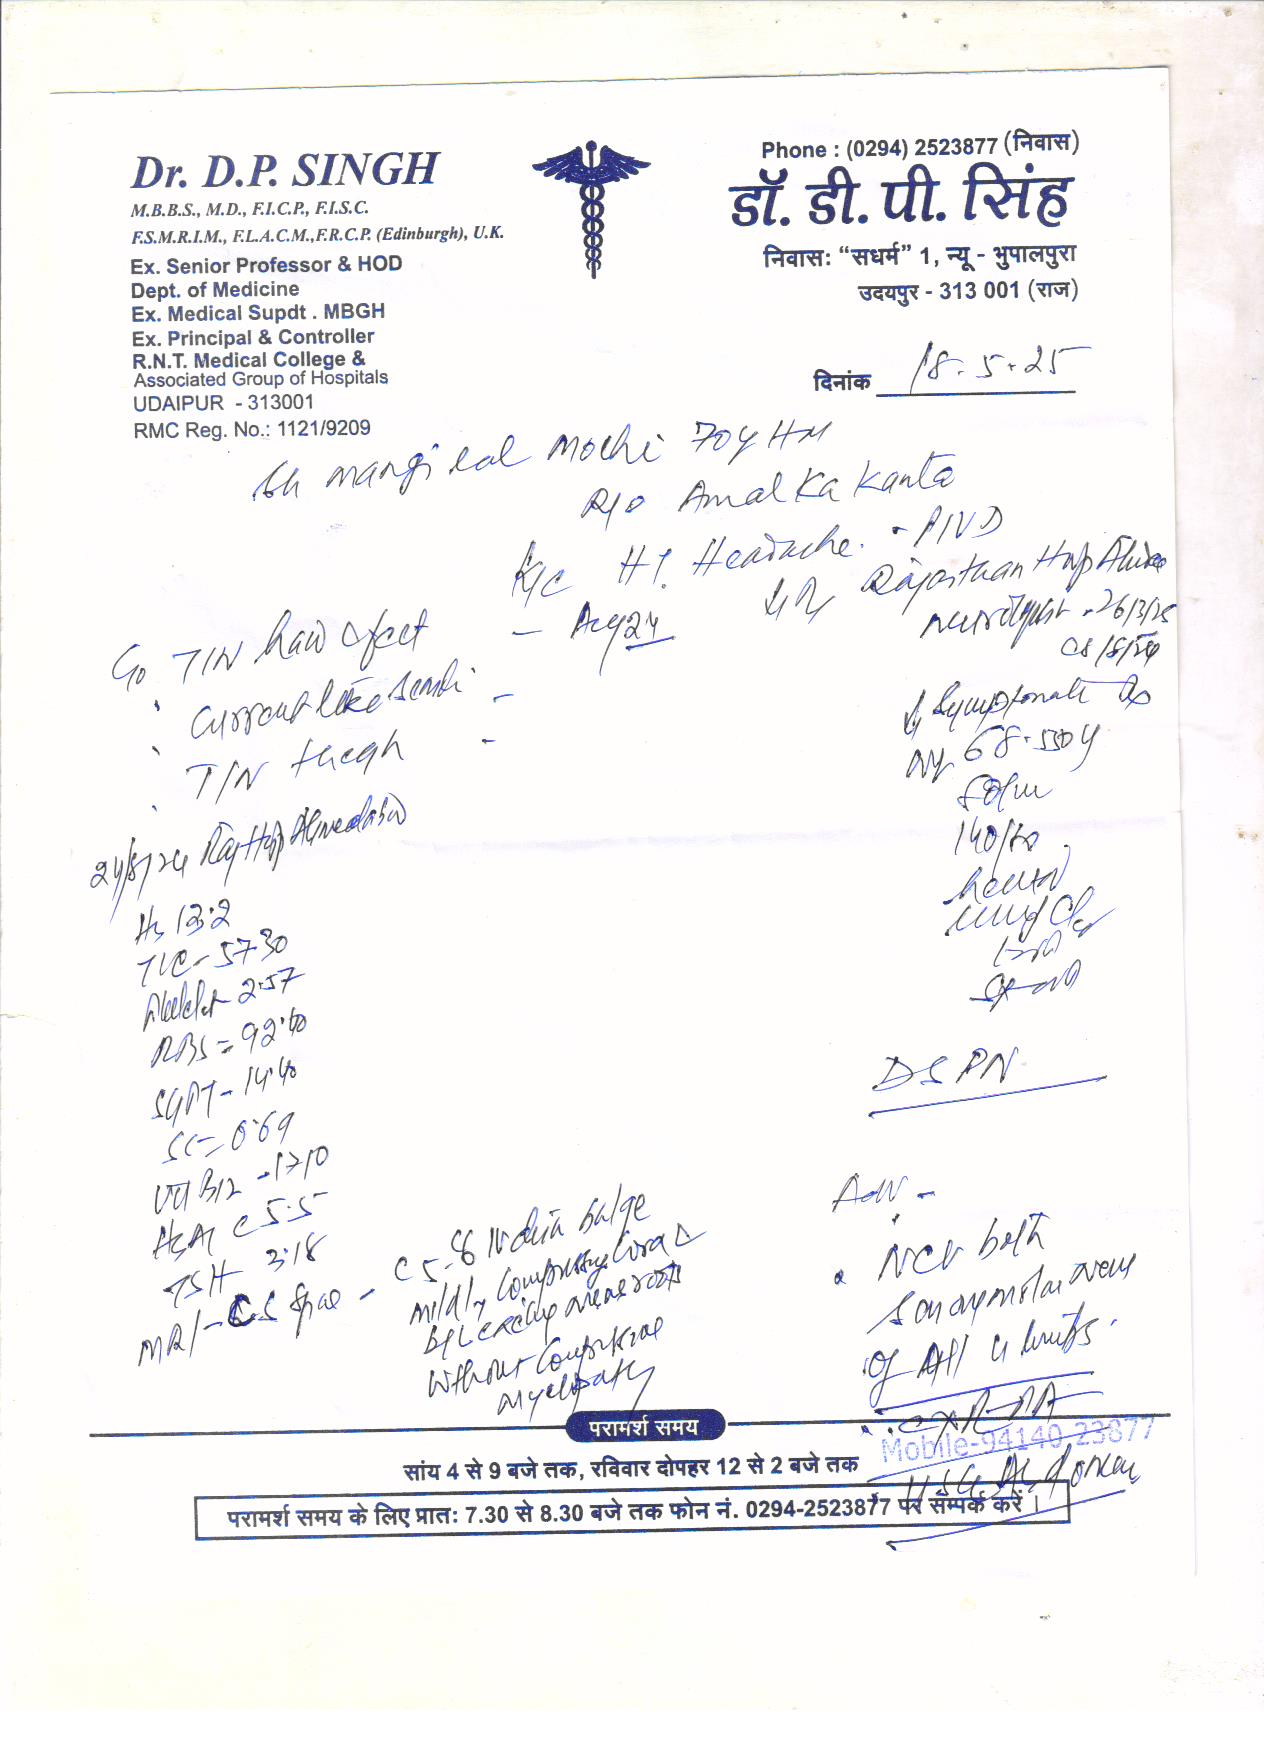 Dr. D.P. SINGH
M.B.B.S., M.D., F.I.C.P., F.I.S.C.
F.S.M.R.I.M., F.L.A.C.M.,F.R.C.P. (Edinburgh), U.K.
Ex. Senior Professor & HOD
Dept. of Medicine
Ex. Medical Supdt . MBGH
Ex. Principal & Controller
R.N.T. Medical College &
Associated Group of Hospitals
UDAIPUR - 313001
RMC Reg. No.: 1121/9209
Phone : (0294) 2523877 (निवास)
डॉ. डी. पी. सिंह
निवासः “सधर्म” 1, न्यू - भुपालपुरा
उदयपुर - 313 001 (राज)
दिनांक 18.5.25
Sh mangi lal mochi 70y HM
R/o Amal Ka Kanta
K/C HT. Headache. - PIVD
Rajasthan Hosp
- Aug 24
Neurologist - 26/3/25
08/8/24
C/o T/N hand & feet
Current like
T/N thegh
Symptomatic
68.550 y
80/m
140/80
24/8/24 Raj Hosp Ahmedabad
Hb 13.2
TLC - 5730
2.57
RBS = 92.40
SGPT - 14.40
SC = 0.69
Vit B12 - 1710
HbA1c 5.5
TSH 3.18
MRI - C.S Spine - C5-6 bulge
mildly Compressing Cord &
B/L exiting nerve roots
Without Compressive
myelopathy
DSPN
Adv -
NCV both
Sensory motor nerves
of All 4 limbs.
CXR-PA
USG Abdomen
परामर्श समय
Mobile-94140 23877
सांय 4 से 9 बजे तक, रविवार दोपहर 12 से 2 बजे तक
परामर्श समय के लिए प्रातः 7.30 से 8.30 बजे तक फोन नं. 0294-2523877 पर सम्पर्क करें ।